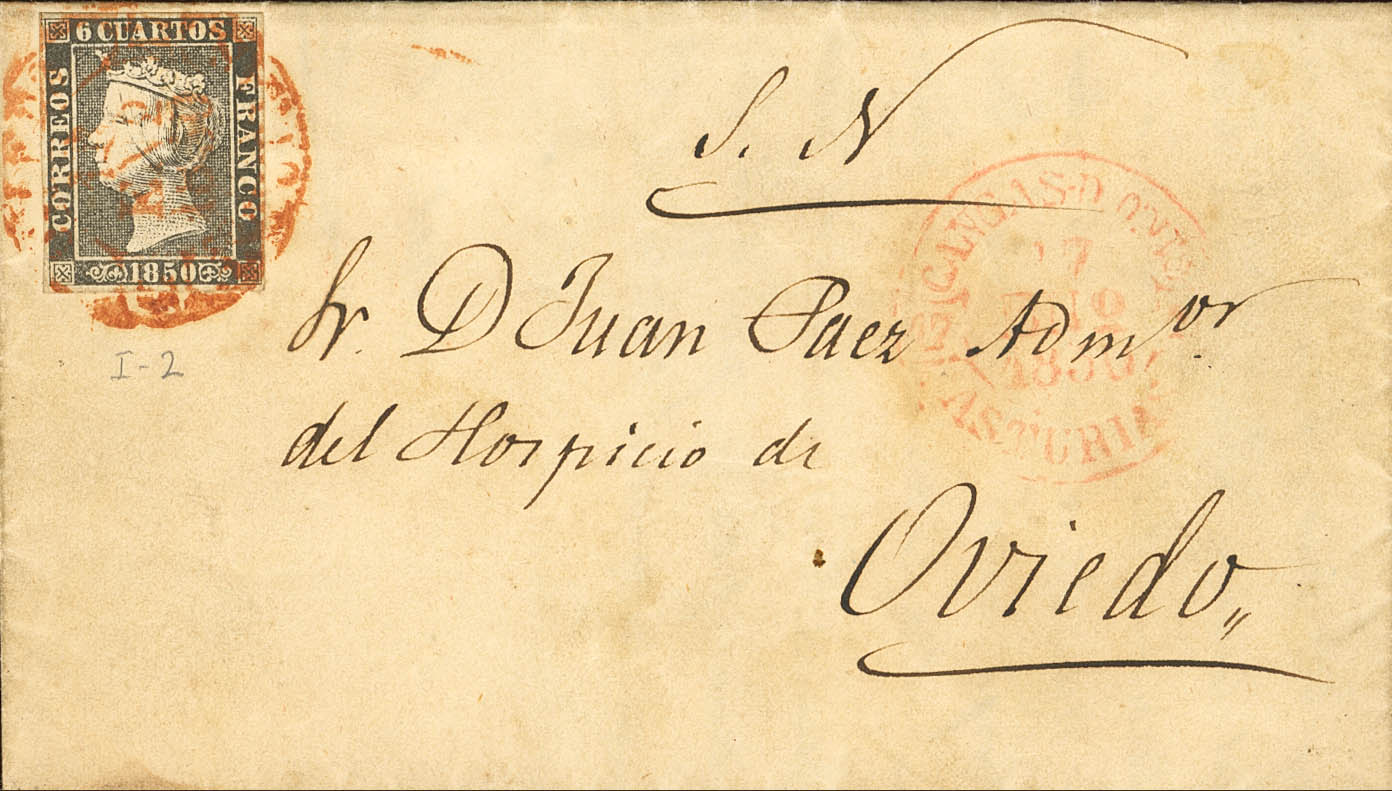 6 CUARTOS
CORREOS
FRANCO
1850
S. N
Sr. D Juan Paez Admor.
del Hospicio de
Oviedo,,
I-2
17
1850
ASTURIAS